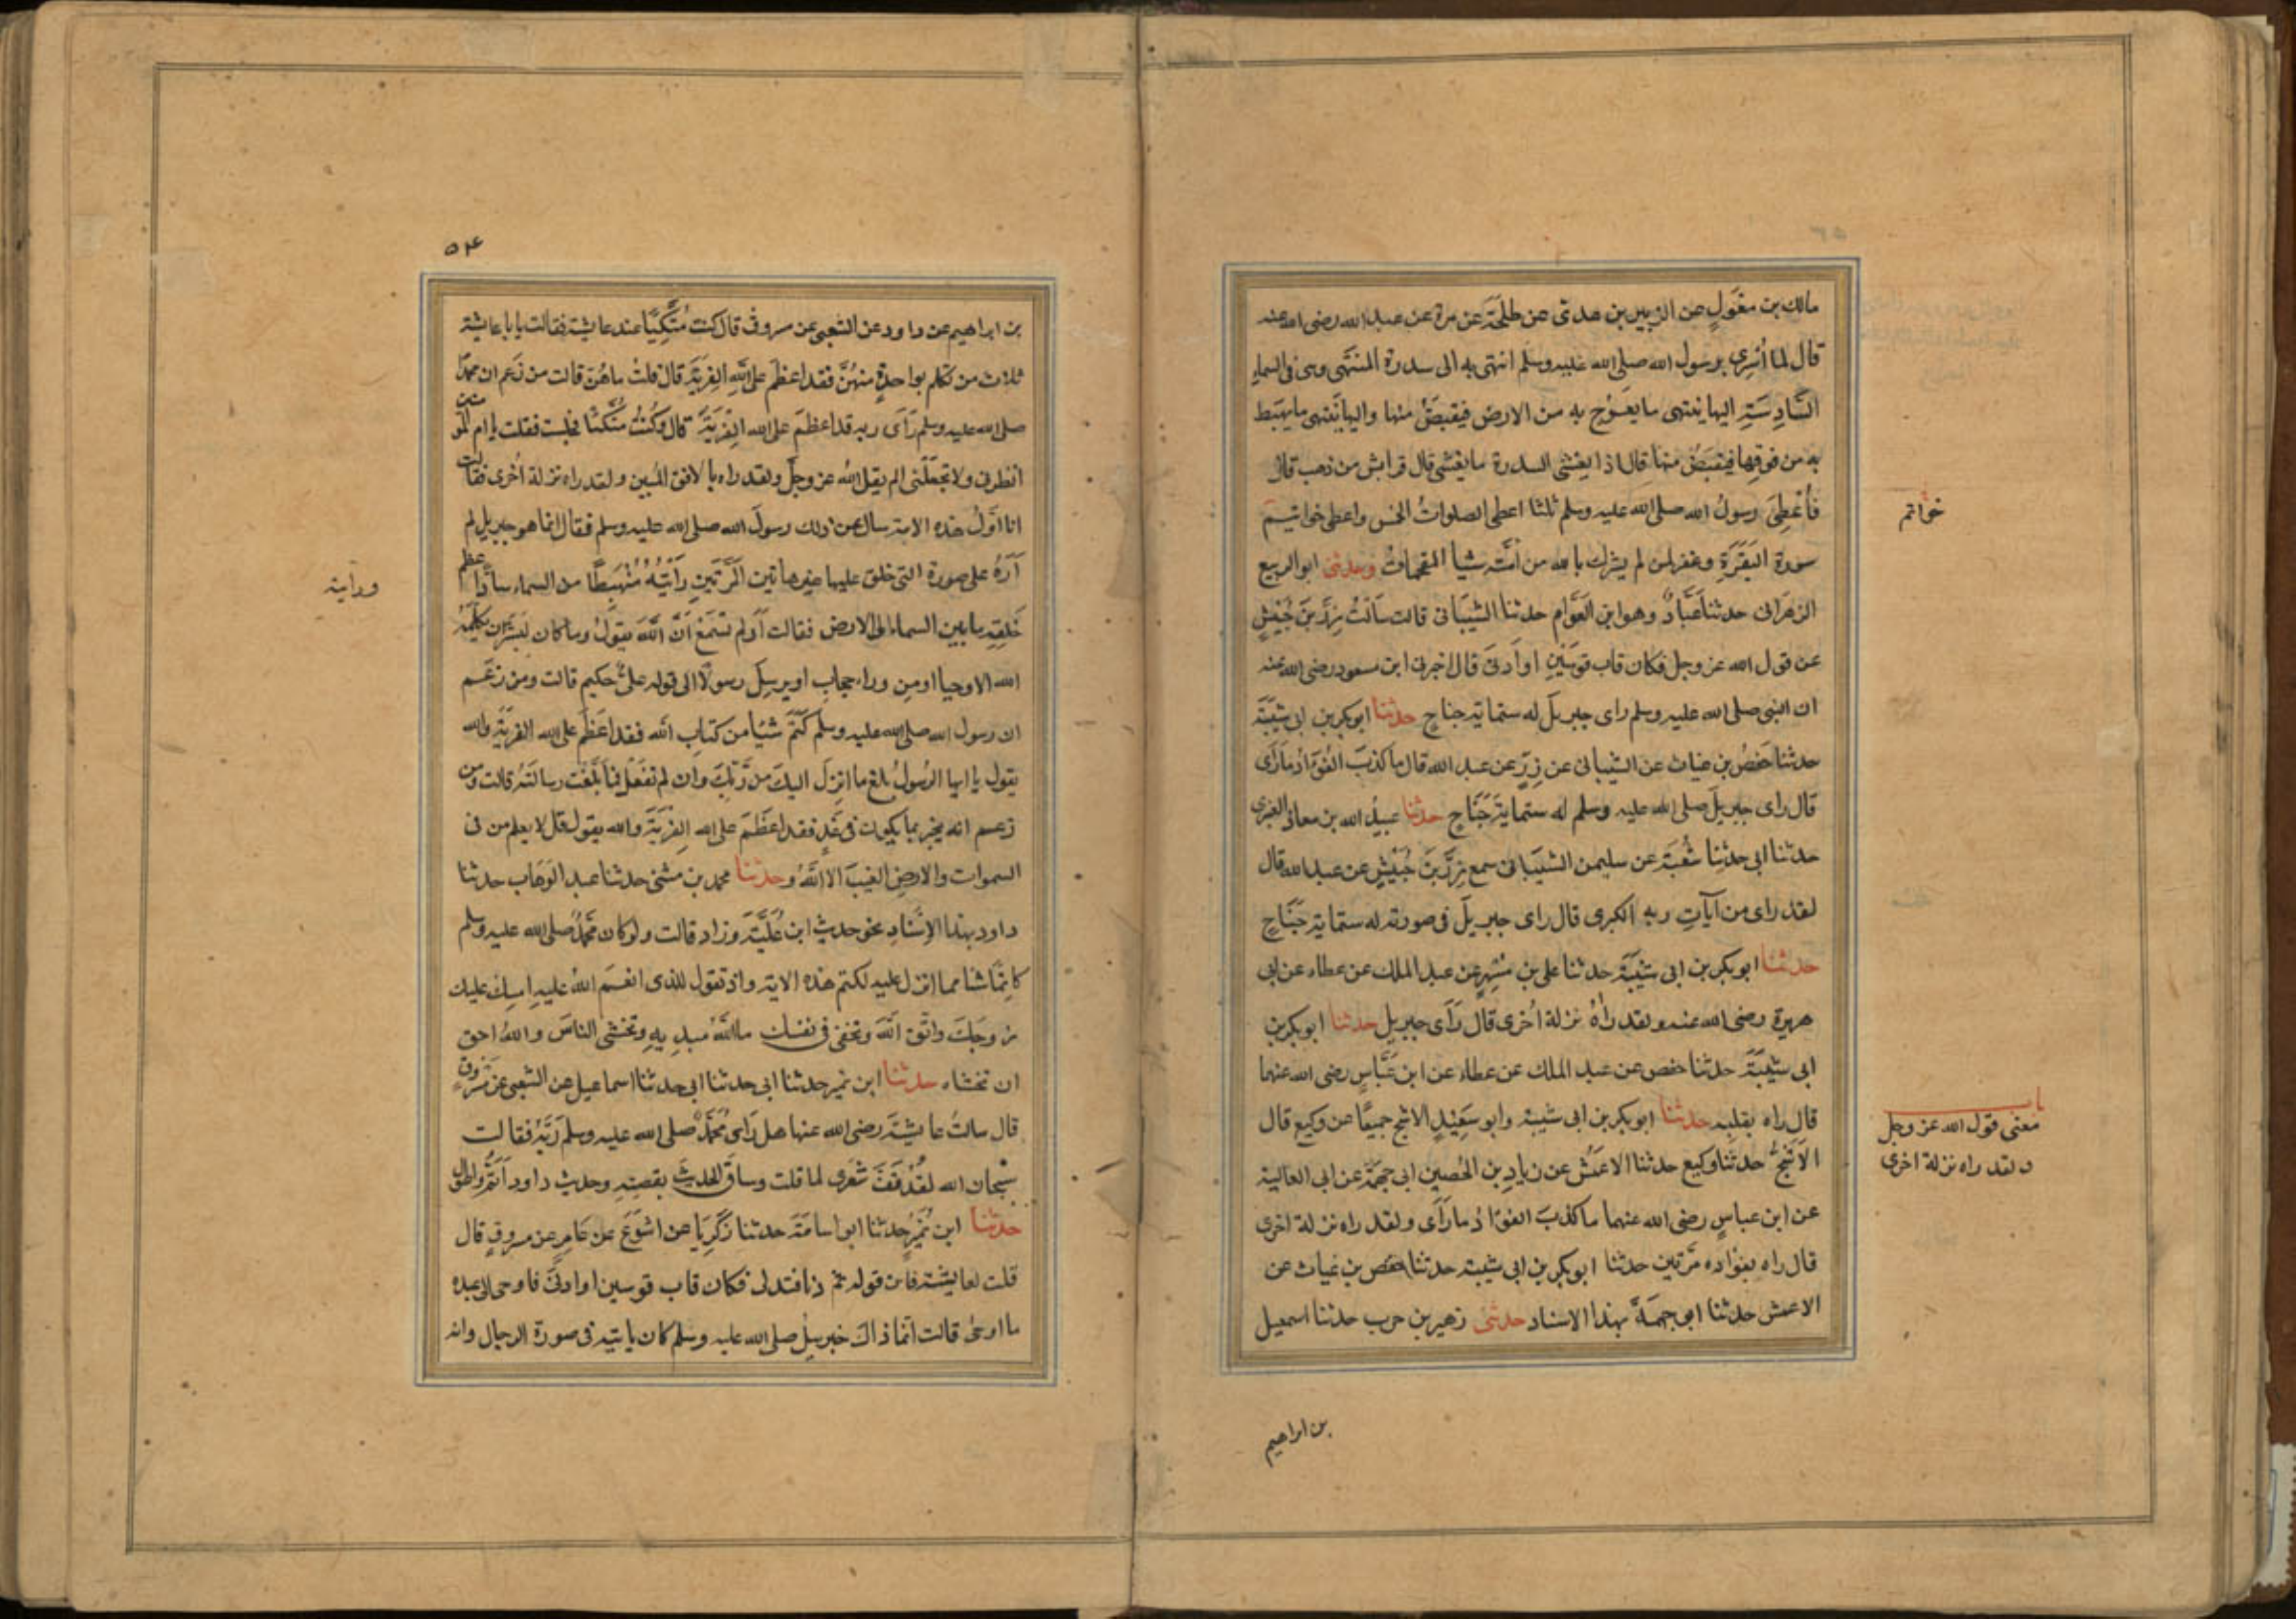 مالك بن مغول عن الزبير بن عدي عن طلحة عن مرة عن عبد الله رضى الله عنه
قال لما أسرى برسول الله صلى الله عليه وسلم انتهى به الى سدرة المنتهى وهى فى السماء
السادسة اليها ينتهى ما يعرج به من الارض فيقبض منها واليها ينتهى ما يهبط
به من فوقها فيقبض منها قال اذا يغشى السدرة ما يغشى قال فراش من ذهب قال
فأعطى رسول الله صلى الله عليه وسلم ثلثا اعطى الصلوات الخمس واعطى خواتيم
سورة البقرة وغفر لمن لم يشرك بالله من امته شيا المقحمات وحدثنى ابو الربيع
الزهرانى حدثنا عباد وهو ابن العوام حدثنا الشيبانى قالت سألت زر بن حبيش
عن قول الله عز وجل فكان قاب قوسين او أدنى قال اخبرنى ابن مسعود رضى الله عنه
ان النبى صلى الله عليه وسلم راى جبريل له ستماية جناح حدثنا ابو بكر بن ابى شيبة
حدثنا حفص بن غياث عن الشيبانى عن زر عن عبد الله قال ما كذب الفؤاد ما رأى
قال راى جبريل صلى الله عليه وسلم له ستماية جناح حدثنا عبيد الله بن معاذ العنبرى
حدثنا ابى حدثنا شعبة عن سليمن الشيبانى سمع زر بن حبيش عن عبد الله قال
لقد راى من آيات ربه الكبرى قال راى جبريل فى صورته له ستماية جناح
حدثنا ابو بكر بن ابى شيبة حدثنا على بن مسهر عن عبد الملك عن عطاء عن ابى
هريرة رضى الله عنه ولقد رأه نزلة أخرى قال رأى جبريل حدثنا ابو بكر بن
ابى شيبة حدثنا حفص عن عبد الملك عن عطاء عن ابن عباس رضى الله عنهما
قال راه بقلبه حدثنا ابو بكر بن ابى شيبة وابو سعيد الاشج جميعا عن وكيع قال
الاشج حدثنا وكيع حدثنا الاعمش عن زياد بن الحصين ابى جهمة عن ابى العالية
عن ابن عباس رضى الله عنهما ما كذب الفؤاد ما رأى ولقد راه نزلة اخرى
قال راه بفؤاده مرتين حدثنا ابو بكر بن ابى شيبة حدثنا حفص بن غياث عن
الاعمش حدثنا ابو جهمة بهذا الاسناد حدثنى زهير بن حرب حدثنا اسمعيل
خواتم
باب
معنى قول الله عز وجل
ولقد راه نزلة اخرى
بن ابراهيم
٥٤
بن ابراهيم عن داود عن الشعبى عن مسروق قال كنت متكيا عند عايشة فقالت يا با عايشة
ثلاث من تكلم بواحدة منهن فقد اعظم على الله الفرية قال قلت ما هن قالت من زعم ان محمدا
صلى الله عليه وسلم رأى ربه قد اعظم على الله الفرية قال وكنت متكئا فجلست فقلت يا ام المؤمنين
انظرنى ولا تجعلنى الم يقل الله عز وجل ولقد راه بالافق المبين ولقد راه نزلة أخرى فقالت
انا اول هذه الامة سال عن ذلك رسول الله صلى الله عليه وسلم فقال انما هو جبريل لم
أره على صورة التى خلق عليها غير هاتين المرتين رأيته منهبطا من السماء سادا عظم
خلقه ما بين السماء الى الارض فقالت أو لم تسمع أن الله يقول وما كان لبشر ان يكلمه
الله الا وحيا او من وراء حجاب او يرسل رسولا الى قوله على حكيم قالت ومن زعم
ان رسول الله صلى الله عليه وسلم كتم شيئا من كتاب الله فقد اعظم على الله الفرية والله
يقول يا ايها الرسول بلغ ما انزل اليك من ربك وان لم تفعل فما بلغت رسالته قالت ومن
زعم انه يخبر بما يكون فى غد فقد اعظم على الله الفرية والله يقول قل لا يعلم من فى
السموات والارض الغيب الا الله وحدثنا محمد بن مثنى حدثنا عبد الوهاب حدثنا
داود بهذا الاسناد نحو حديث ابن علية وزاد قالت ولو كان محمد صلى الله عليه وسلم
كاتما شئا مما انزل عليه لكتم هذه الاية واذ تقول للذى انعم الله عليه امسك عليك
زوجك واتق الله وتخفى فى نفسك ما الله مبديه وتخشى الناس والله احق
ان تخشاه حدثنا ابن نمير حدثنا ابى حدثنا ابى حدثنا اسماعيل عن الشعبى عن مسروق
قال سالت عايشة رضى الله عنها هل رأى محمد صلى الله عليه وسلم ربه فقالت
سبحان الله لقد قف شعرى لما قلت وساق الحديث بقصته وحديث داود أتم واطول
حدثنا ابن نمير حدثنا ابو اسامة حدثنا زكريا عن اشوع عن عامر عن مسروق قال
قلت لعايشة فاين قوله ثم دنا فتدلى فكان قاب قوسين او ادنى فاوحى الى عبده
ما اوحى قالت انما ذاك جبريل صلى الله عليه وسلم كان ياتيه فى صورة الرجال وانه
ورايته